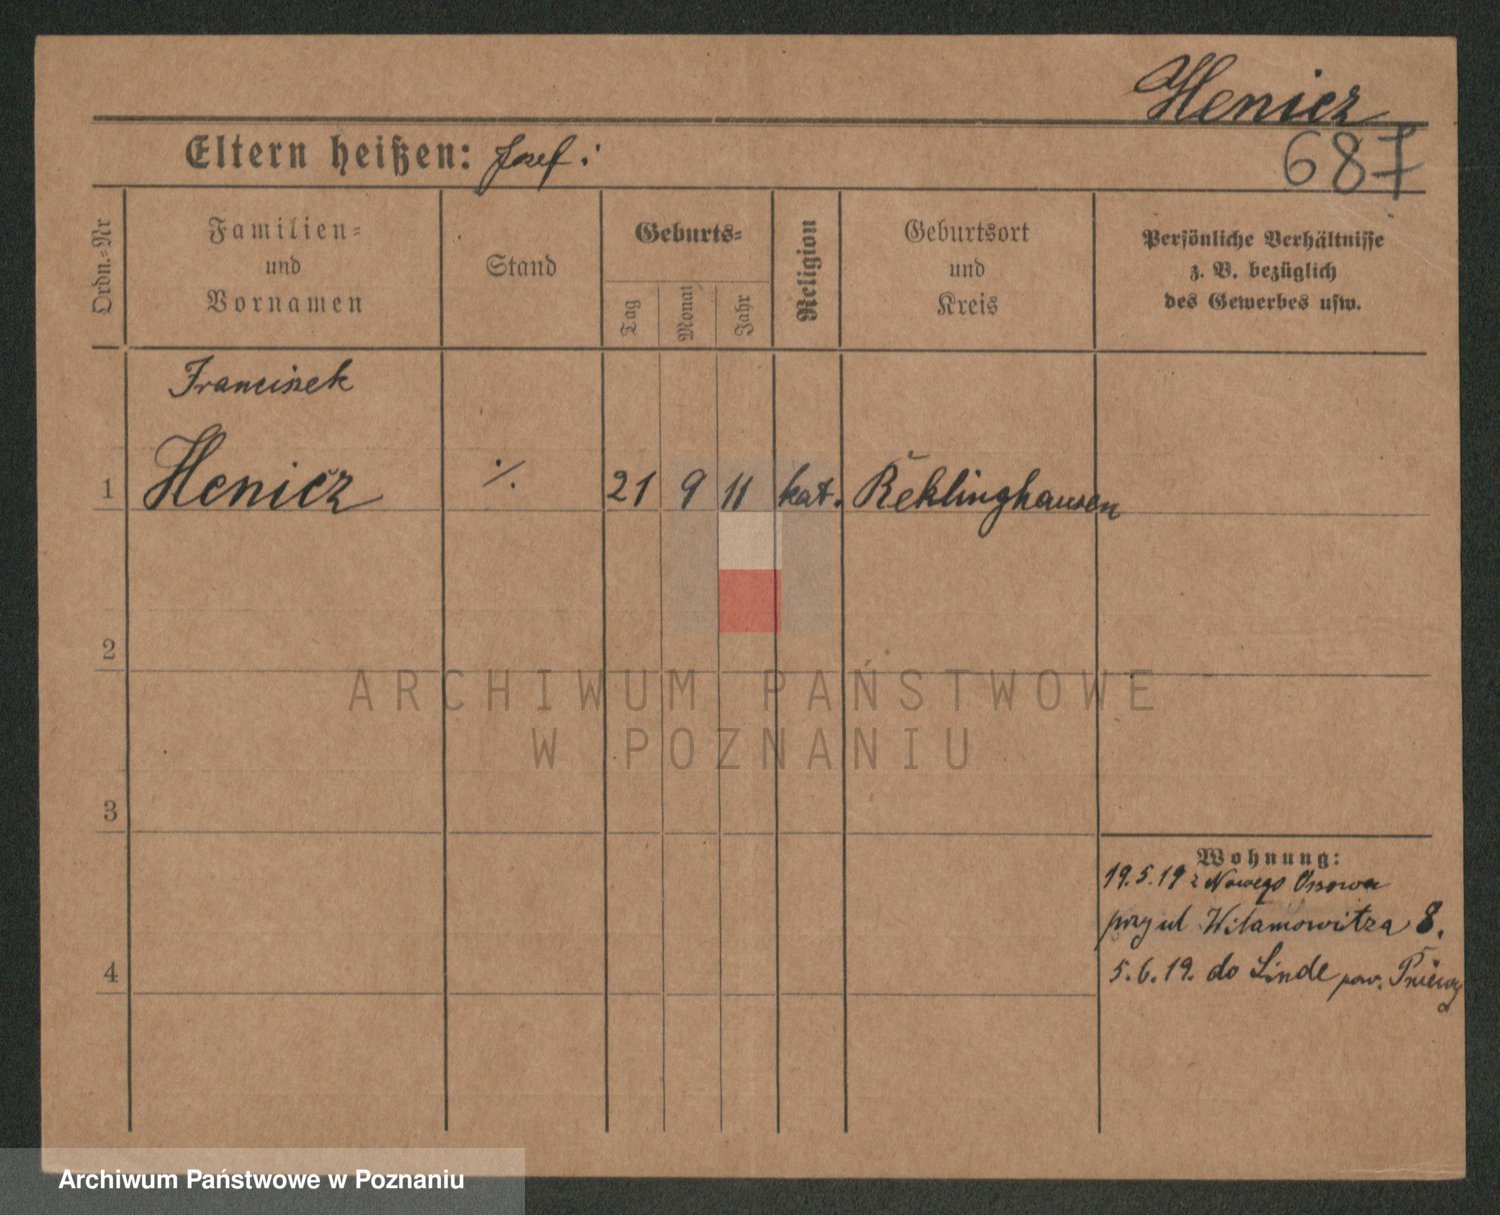 Henicz
687
Eltern heißen: Josef i
Ordn.-Nr
Familien- und Vornamen
Stand
Geburts-
Tag
Monat
Jahr
Religion
Geburtsort und Kreis
Persönliche Verhältnisse z. B. bezüglich des Gewerbes usw.
Franciszek
1 Henicz ./. 21 9 11 kat. Reklinghausen
2
ARCHIWUM PAŃSTWOWE
W POZNANIU
3
Wohnung:
19.5.19 z Nowego
przy ul Wilamowitza 8.
4
5.6.19. do Linde pow.
Archiwum Państwowe w Poznaniu